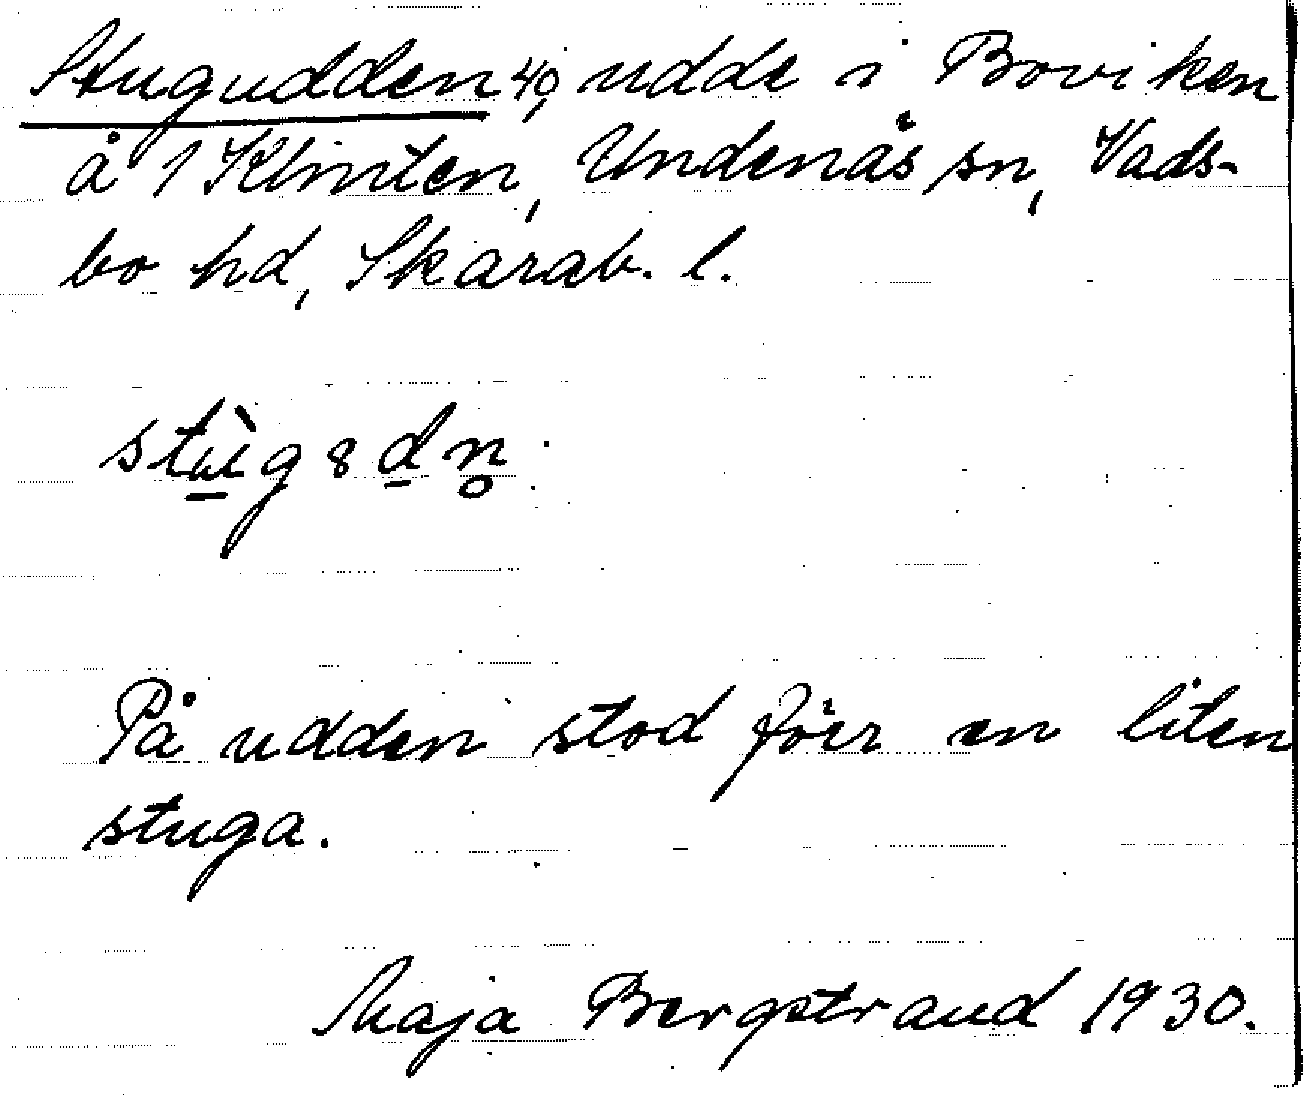 Stugudden 40, udde i Boviken
å 1 Klinten, Undenäs sn, Vads-
bo hd, Skarab. l.
stùg8dn̥.
På udden stod förr en liten
stuga.
Maja Bergstrand 1930.